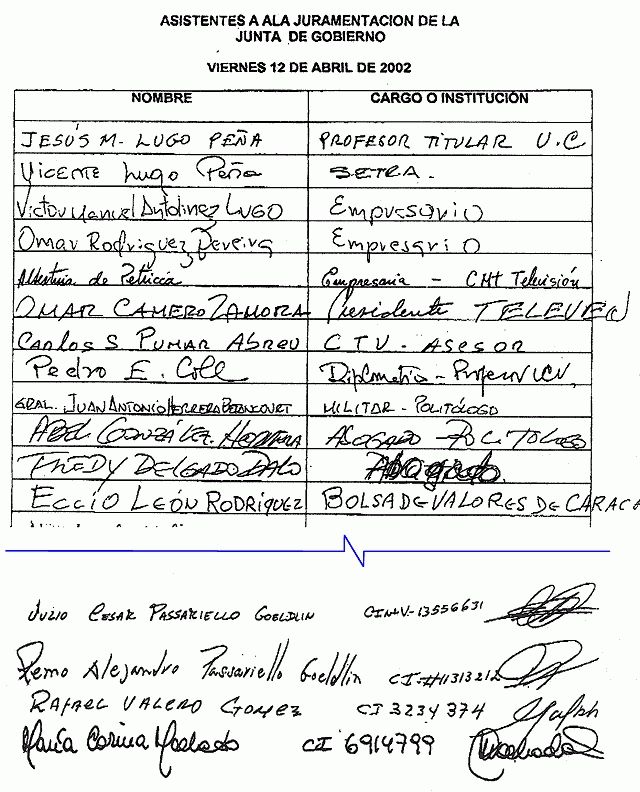 ASISTENTES A ALA JURAMENTACION DE LA
JUNTA DE GOBIERNO
VIERNES 12 DE ABRIL DE 2002
NOMBRE CARGO O INSTITUCIÓN
JESÚS M. LUGO PEÑA PROFESOR TITULAR U.C
Vicente Lugo Peña SETRA.
Victor Manuel Antolinez LUGO Empresario
Omar Rodriguez Pereira Empresario
de Petricca Empresaria - CMT Televisión
OMAR CAMERO ZAMORA Presidente TELEVEN
Carlos S PUMAR ABREU CTV - ASESOR
Pedro E. Coll Diplomático - Profesor UCV,
GRAL. JUAN ANTONIO HERRERA BETANCOURT MILITAR - POLITÓLOGO
ABEL GONZÁLEZ HERRERA ABOGADO - POLITOLOGO
FREDY DELGADO Abogado
ECCIO LEÓN RODRÍQUEZ BOLSA DE VALORES DE CARACA
JULIO CESAR PASSARIELLO GOELDLIN CI Nº V-13556631
Remo Alejandro Passariello Goeldlin CI #11313212
RAFAEL VALERO GOMEZ CI 3234374
María Corina Machado CI 6914799